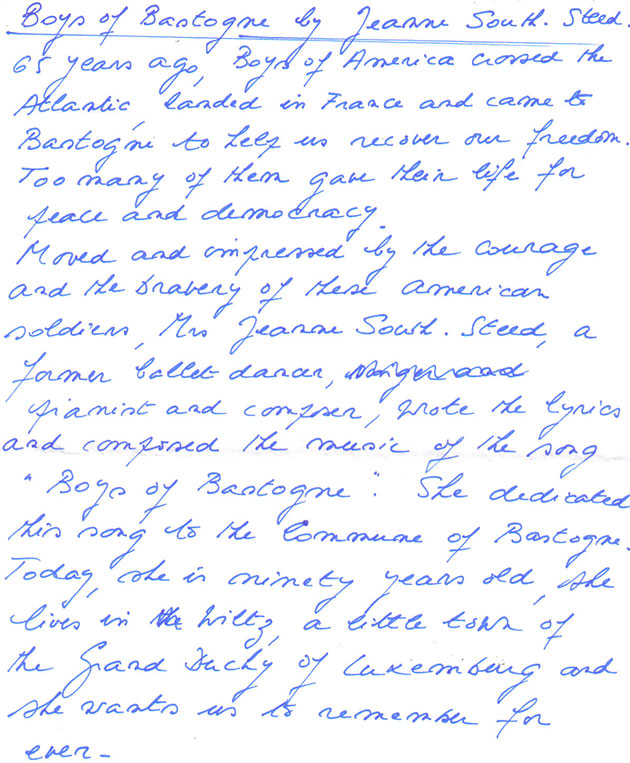 Boys of Bastogne by Jeanne South. Steed.
65 years ago, Boys of America crossed the
Atlantic, landed in France and came to
Bastogne to help us recover our freedom.
Too many of them gave their life for
peace and democracy.
Moved and impressed by the courage
and the bravery of these American
soldiers, Mrs Jeanne South. Steed, a
former ballet dancer,
pianist and composer, wrote the lyrics
and composed the music of the song
"Boys of Bastogne". She dedicated
this song to the Commune of Bastogne.
Today, she is ninety years old, she
lives in Wiltz, a little town of
the Grand Duchy of Luxemburg and
she wants us to remember for
ever-